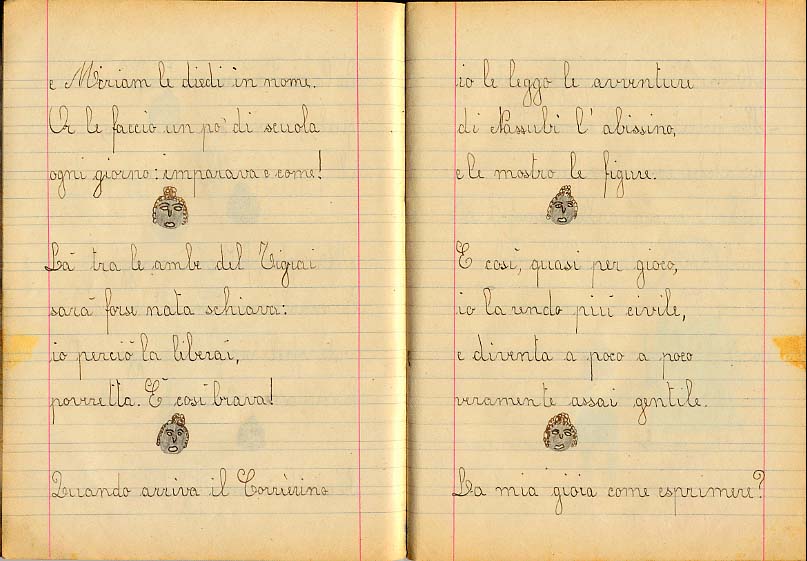 e Miriam le diedi in nome.
Or le faccio un po' di scuola
ogni giorno: imparava e come!
Là tra le ambe del Tigrai
sarà forse nata schiava:
io perciò la liberai,
poveretta. E' così brava!
Quando arriva il Corrierino
io le leggo le avventure
di Nassubì l' abissino,
e le mostro le figure.
E così, quasi per gioco,
io la rendo più civile,
e diventa a poco a poco
veramente assai gentile.
La mia gioia come esprimere?